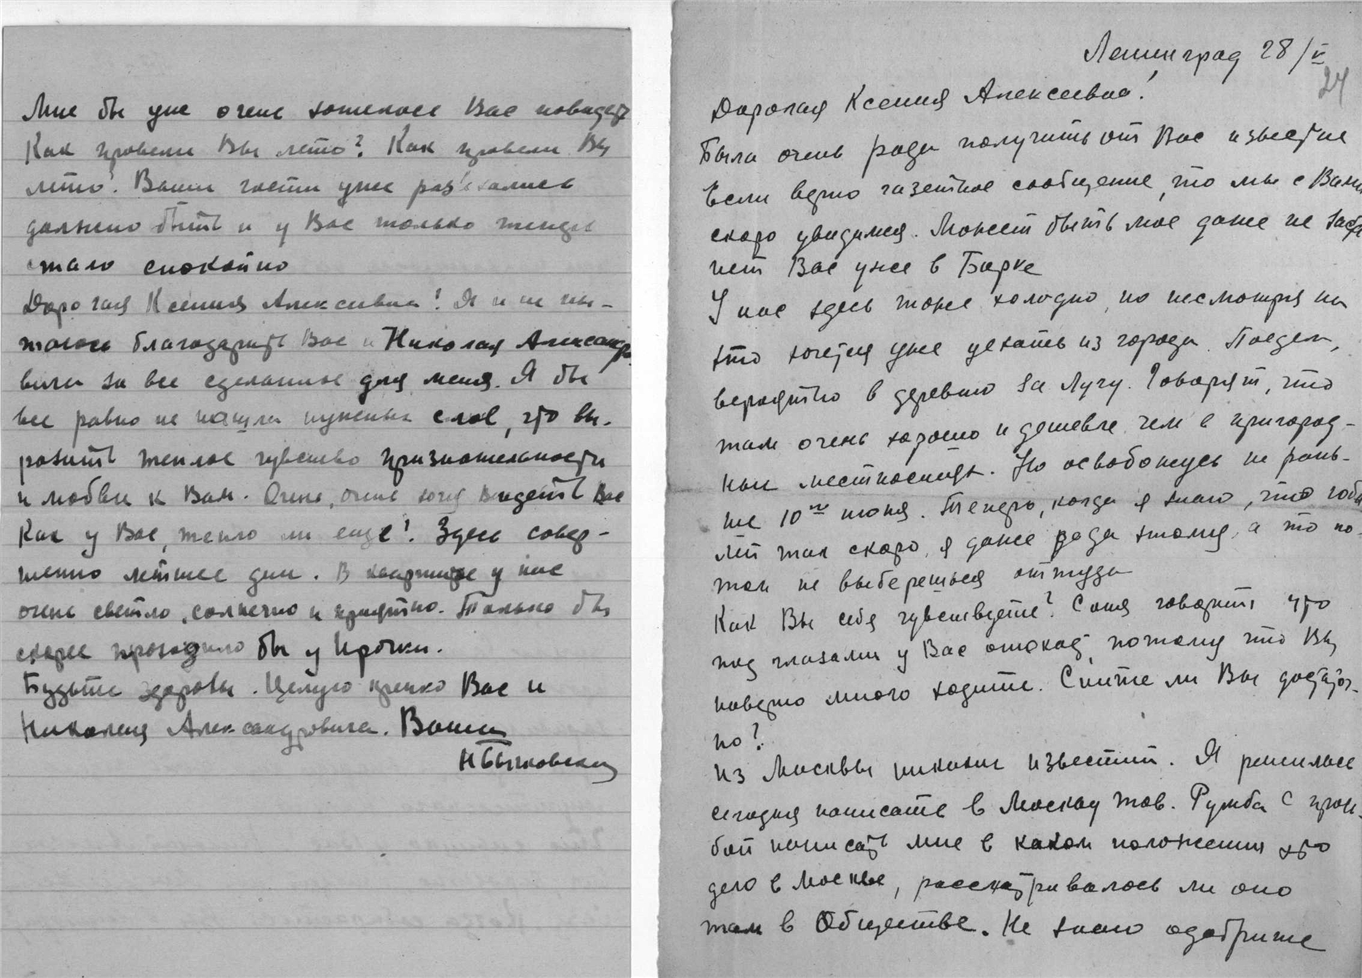 Мне бы уже очень хотелось Вас повидать
Как провели Вы лето? Как провели Вы
лето? Ваши гости уже разъехались
должно быть и у Вас только теперь
стало спокойно
Дорогая Ксения Алексеевна! Я и не пы-
таюсь благодарить Вас и Николая Александро
вича за все сделанное для меня. Я бы
все равно не нашла нужных слов, что вы-
разить теплое чувство признательности
и любви к Вам. Очень, очень хочу видеть Вас
Как у Вас, тепло ли еще? Здесь совер-
шенно летние дни. В квартире у нас
очень светло, солнечно и приятно. Только бы
скорее проходило бы у Ирочки.
Будьте здоровы. Целую крепко Вас и
Николая Александровича. Ваша
НБыховская
Ленинград 28/V
24
Дорогая Ксения Алексеевна!
Была очень рада получить от Вас известие
Если верно газетное сообщение, что мы с Вами
скоро увидимся. Может быть мое даже не заста
нет Вас уже в Барке
У нас здесь тоже холодно, но несмотря на
это хочется уже уехать из города. Поедем,
вероятно в деревню за Лугу. Говорят, что
там очень хорошо и дешевле чем в пригород-
ных местностях. Но освобожусь не рань-
ше 10го июня. Теперь, когда я знаю, что
так скоро, я даже рада этому, а то по-
том не выберешься оттуда
Как Вы себя чувствуете? Соня говорит что
под глазами у Вас отеки, потому что Вы
наверно много ходите. Спите ли Вы достаточ-
но?
Из Москвы никаких известий. Я решилась
сегодня написать в Москву тов. Румба с прось-
бой написать мне в каком положении это
дело в Москве, рассматривалось ли оно
там в Обществе. Не знаю одобрите